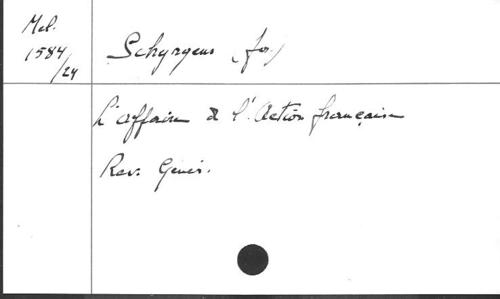 Mel.
1584/24
Schyrgens (Jos.)
L'affaire de l'Action française
Rev. Génér.